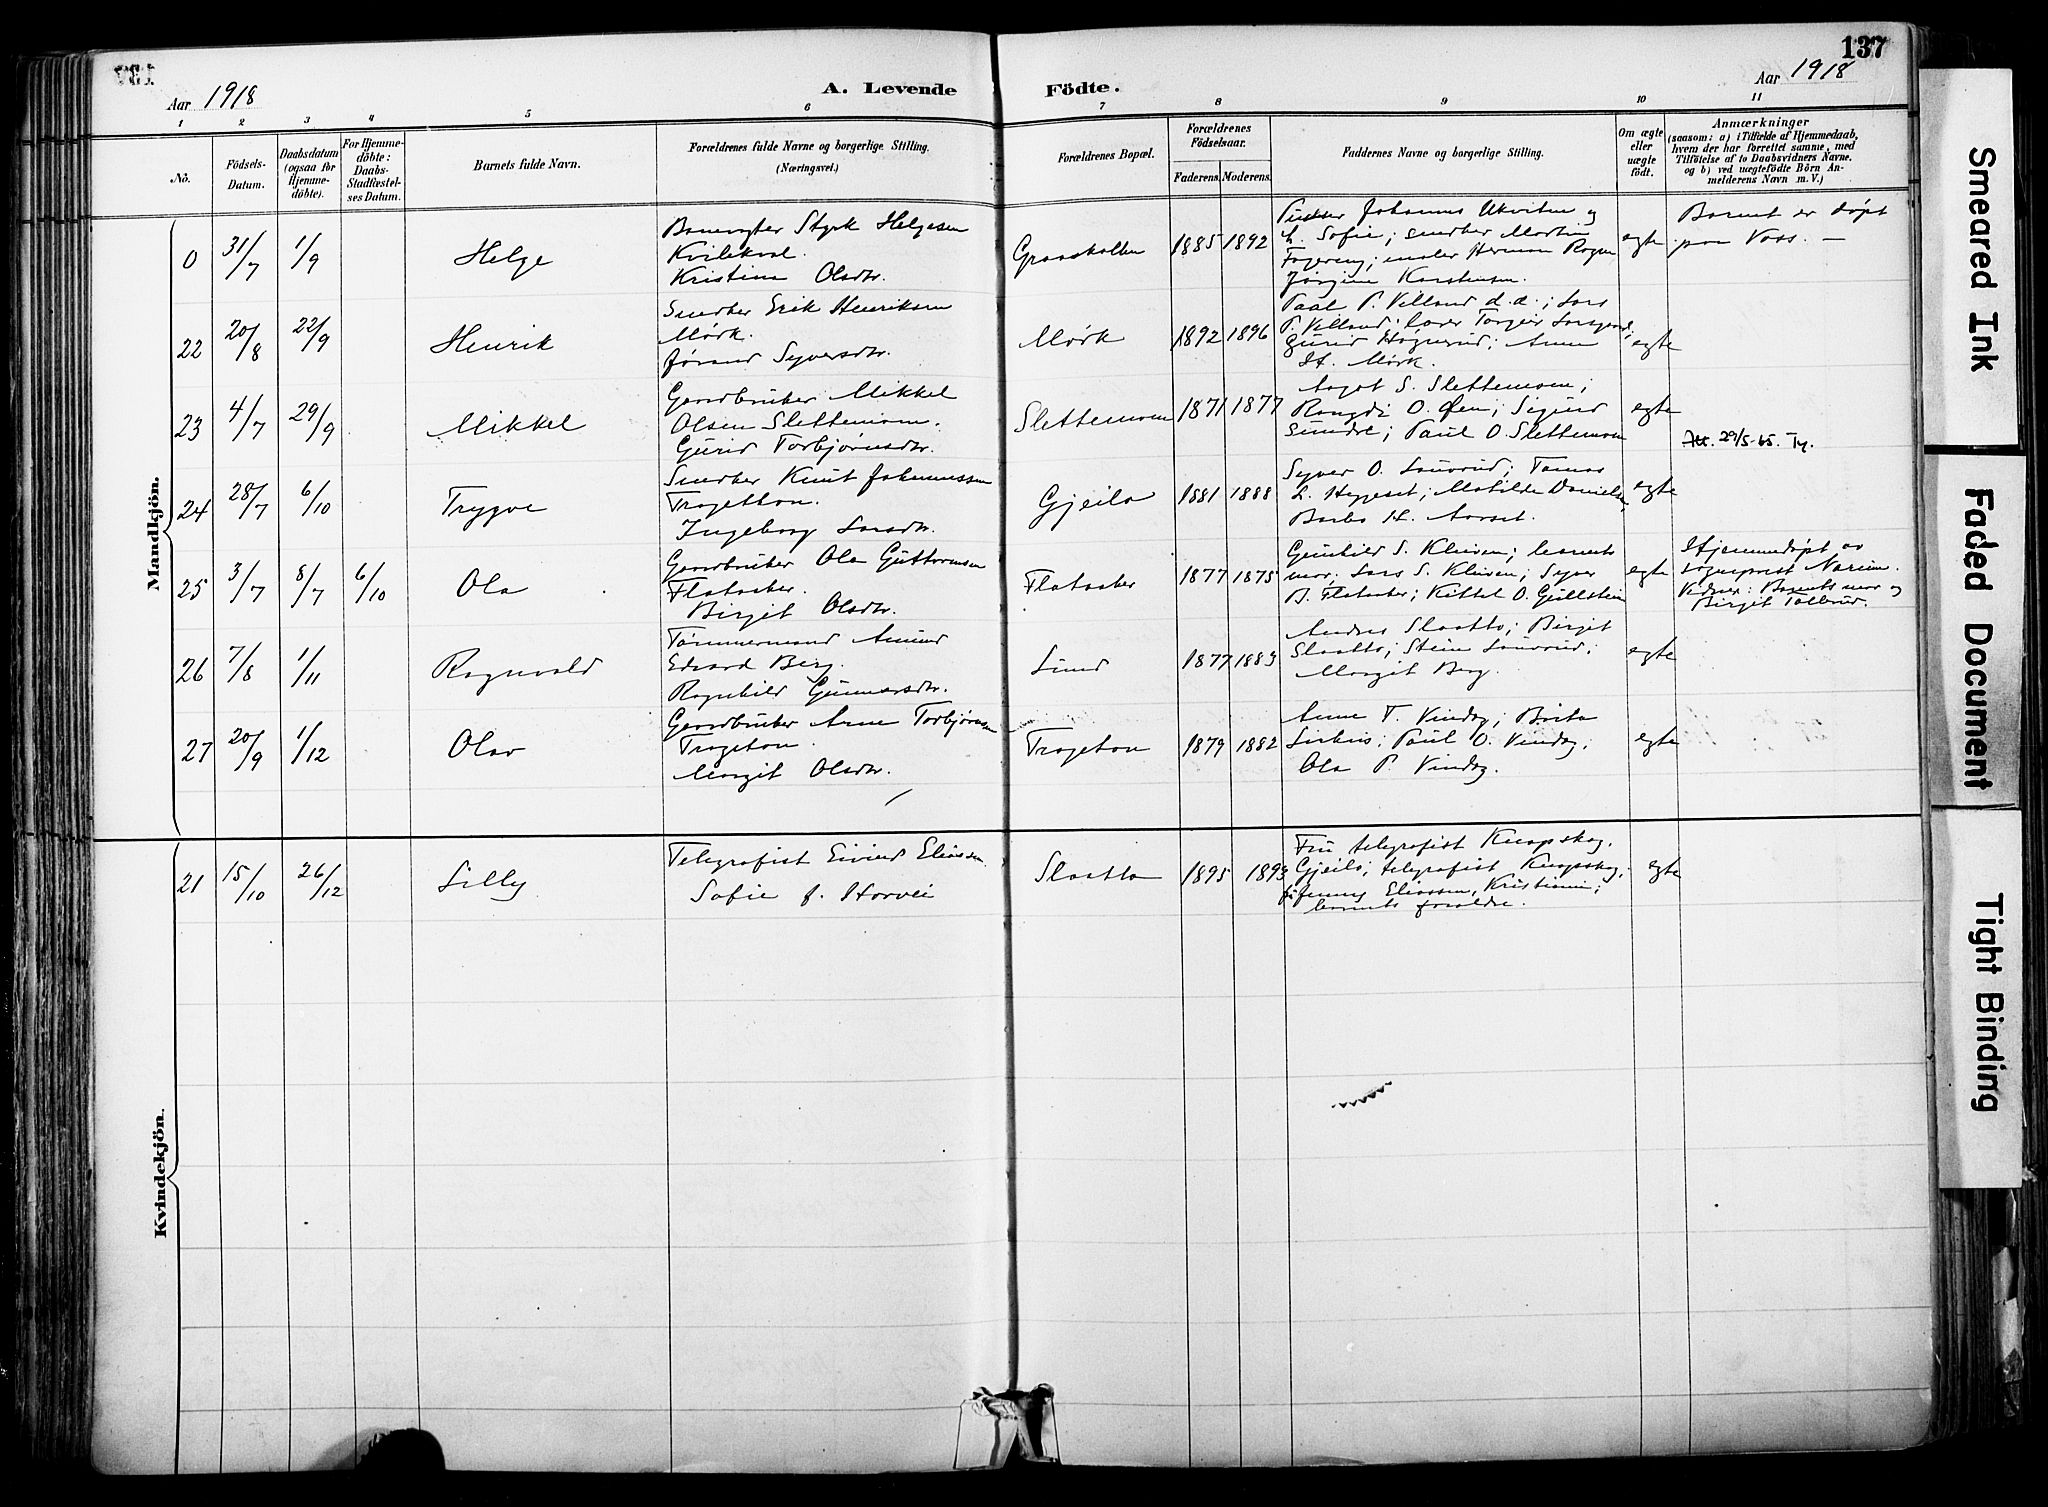 137
Aar 1918
A. Levende Födte.
Aar 1918
1 2 3 4 5 6 7 8 9 10 11
No.
Födsels-
Datum.
Daabsdatum
(ogsaa for
Hjemme-
döbte).
For Hjemme-
döbte:
Daabs-
Stadfæstel-
ses Datum.
Barnets fulde Navn.
Forældrenes fulde Navne og borgerlige Stilling.
(Næringsvei.)
Forældrenes Bopæl.
Forældrenes
Födselsaar.
Faderens. Moderens.
Faddernes Navne og borgerlige Stilling.
Om ægte
eller
uægte
födt.
Anmærkninger
(saasom: a) i Tilfælde af Hjemmedaab,
hvem der har forrettet samme, med
Tilföielse af to Daabsvidners Navne.
og b) ved uægtefödte Börn An-
melderens Navn m. V.)
Mandkjön.
0 31/7 1/9 Helge
Banevogter Styrk Helgesen
Kvilekval.
Kristine Olsdtr.
Graaskallen 1885 1892
Johannes Ukvitne og
h. Sofie; snedker Martin
Fagereng; maler Herman
Jørgine Karstensen.
egte
Barnet er døpt
paa Voss. —
22 20/8 22/9 Henrik
Snedker Erik Henriksen
Mørk.
Jørand Syversdtr.
Mørk 1892 1896
Paal P. Villand d.a.; Lars
P. Villand; Torgeir
Gurid Høgnerud; Anne
H. Mørk.
egte
23 4/7 29/9 Mikkel
Gaardbruker Mikkel
Olsen Slettemoen.
Gurid Torbjørnsdtr.
Slettemoen 1871 1877
Aagot S. Slettemoen;
Rangdi O. Øen; Sigurd
Sundre; Paul O. Slettemoen
egte
Att. 29/5-65. Ty.
24 28/7 6/10 Trygve
Snedker Knut Johannessen
Trageton.
Ingeborg Larsdtr.
Gjeilo 1881 1888
Syver O. Sauerud;
L. Heggeset; Matilde Danielsen,
Barbo H. Aarset.
egte
25 3/7 8/7 6/10 Ola
Gaardbruker Ola Guttormsen
Flataaker.
Birgit Olsdtr.
Flataaker 1877 1875
Gunhild S. Kleiven; barnets
mor; Lars S. Kleiven; Syver
B. Flataaker; Kittel O. Gullstein
egte
Hjemmedøpt av
sogneprest
Vidner: Barnets mor og
Birgit Tollerud.
26 7/8 1/11 Ragnvald
Tømmermand Amund
Edvard Berg.
Ragnhild Gunnarsdtr.
Lund 1877 1883
Andres Slaatto; Birgit
Slaatto; Stein Sauerud;
Margit Berg.
egte
27 20/9 1/12 Olav
Gaardbruker Arne Torbjørnsen
Trageton.
Margit Olsdtr.
Trageton 1879 1882
Anne T. Vindeg; Birta
Paul O. Vindeg;
Ola P. Vindeg.
egte
Kvindekjön.
21 15/10 26/12 Lilly
Telegrafist Eivind Eliassen.
Sofie f. Horvei
Slaatto 1895 1893
Fru telegrafist Knapskog,
Gjeilo; telegrafist Knapskog;
Jenny Eliassen, Kristiania;
barnets forældre.
egte
Smeared Ink
Faded Document
Tight Binding